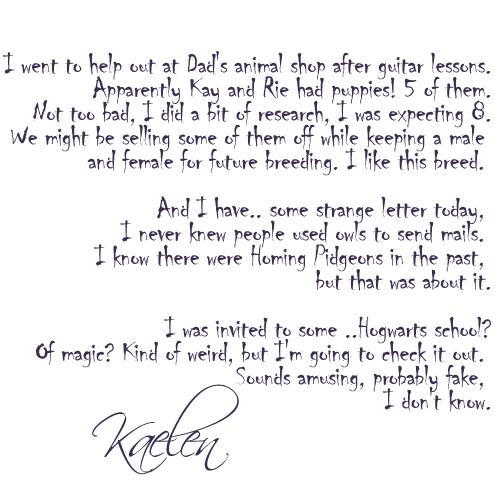 I went to help out at Dad's animal shop after guitar lessons.
Apparently Kay and Rie had puppies! 5 of them.
Not too bad, I did a bit of research, I was expecting 8.
We might be selling some of them off while keeping a male
and female for future breeding. I like this breed.
And I have.. some strange letter today,
I never knew people used owls to send mails.
I know there were Homing Pidgeons in the past,
but that was about it.
I was invited to some ..Hogwarts school?
Of magic? Kind of weird, but I'm going to check it out.
Sounds amusing, probably fake,
I don't know.
Kaelen